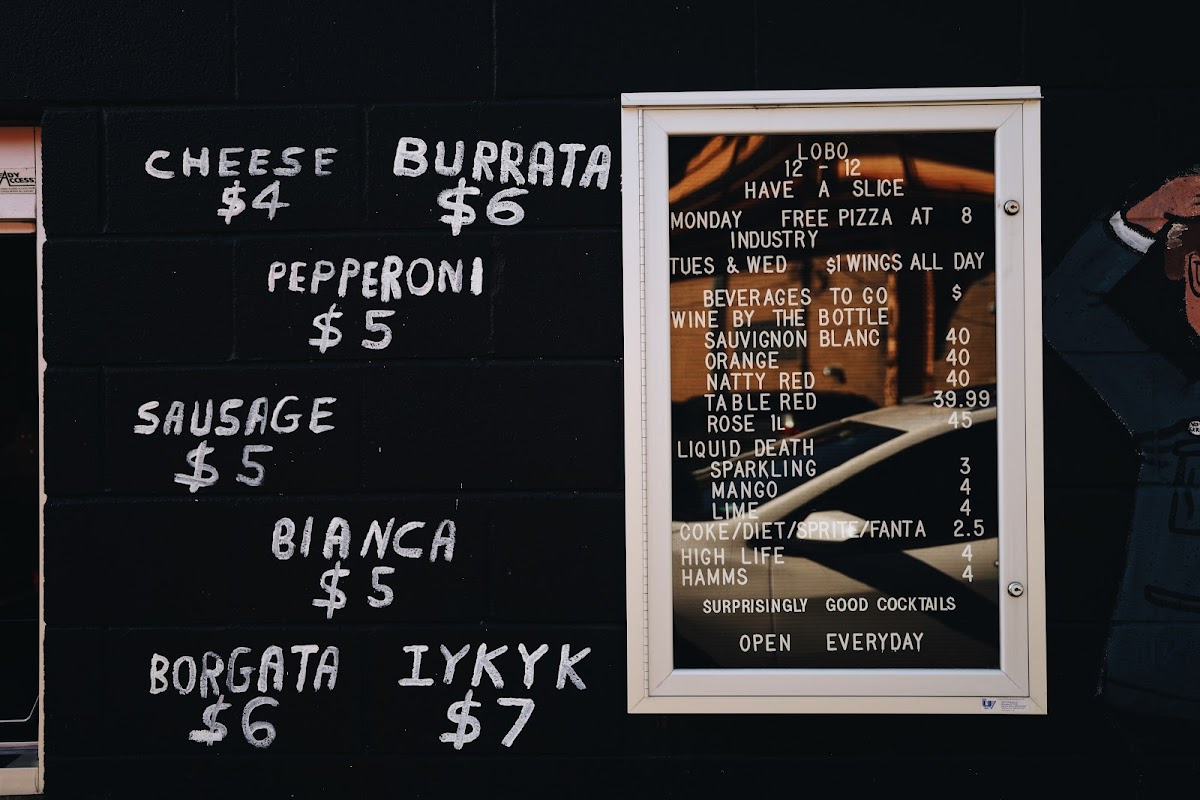 CHEESE
$4
BURRATA
$6
PEPPERONI
$5
SAUSAGE
$5
BIANCA
$5
BORGATA
$6
IYKYK
$7
LOBO
12 - 12
HAVE A SLICE
MONDAY FREE PIZZA AT 8
INDUSTRY
TUES & WED $1 WINGS ALL DAY
BEVERAGES TO GO $
WINE BY THE BOTTLE
SAUVIGNON BLANC 40
ORANGE 40
NATTY RED 40
TABLE RED 39.99
ROSE 1L 45
LIQUID DEATH
SPARKLING 3
MANGO 4
LIME 4
COKE/DIET/SPRITE/FANTA 2.5
HIGH LIFE 4
HAMMS 4
SURPRISINGLY GOOD COCKTAILS
OPEN EVERYDAY